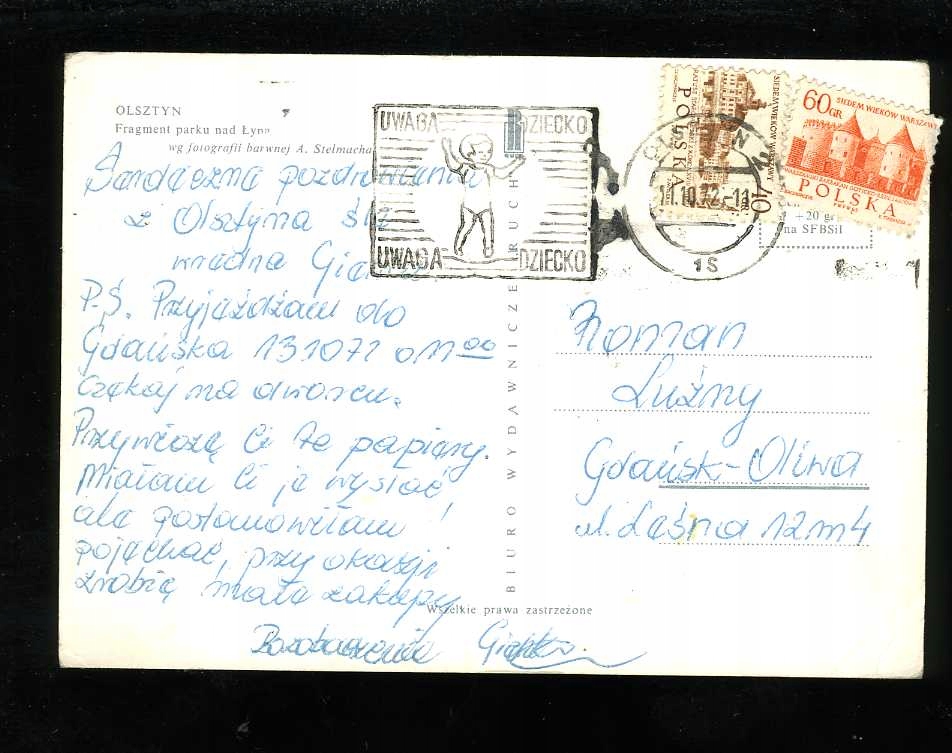 OLSZTYN
Fragment parku nad Łyną
wg fotografii barwnej A. Stelmacha
Serdeczne pozdrowienia
z Olsztyna śle
wredna
P.S. Przyjeżdżam do
Gdańska 131072 o 11 00
czekaj na dworcu.
Przywiozę Ci te papiery.
Miałam Ci je wysłać
ale postanowiłam
pojechać, przy okazji
zrobię małe zakupy
Do zobaczenia
Wszelkie prawa zastrzeżone
BIURO WYDAWNICZE RUCH
UWAGA DZIECKO
UWAGA DZIECKO
11.10.72-11
1S
POLSKA
40
60 GR
SIEDEM WIEKÓW WARSZAWY
POLSKA
+20 gr
na SFBSiI
Roman
Luźny
Gdańsk-Oliwa
ul. Leśna 12 m 4